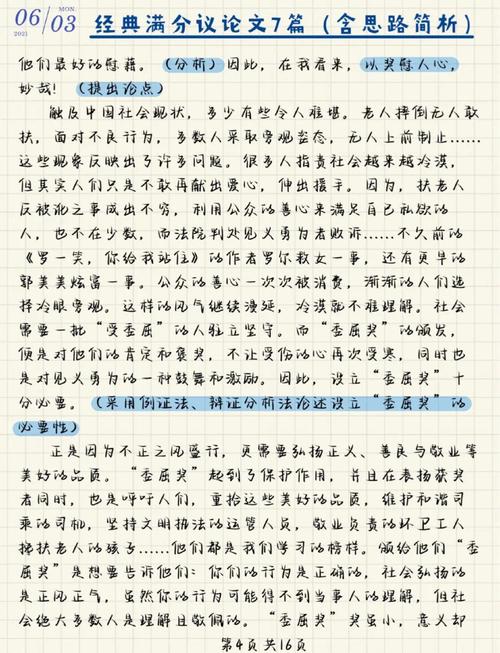 06/03 MON. 2021
经典满分议论文7篇（含思路简析）
他们最好的慰藉。（分析）因此，在我看来，以奖慰人心，
妙哉！（提出论点）
触及中国社会现状，多少有些令人难堪。老人摔倒无人敢
扶，面对不良行为，多数人采取旁观姿态，无人上前制止……
这些现象反映出了许多问题。很多人指责社会越来越冷漠，
但其实人们只是不敢再献出爱心，伸出援手。因为，扶老人
反被讹之事层出不穷，利用公众的善心来满足自己私欲的
人，也不在少数，而法院判处见义勇为者败诉……不久前的
《罗一笑，你给我站住》的作者罗尔救女一事，还有更早的
郭美美炫富一事。公众的善心一次次被消费，渐渐的人们选
择冷眼旁观。这样的风气继续漫延，冷漠就不难理解。社会
需要一批“受委屈”的人驻立坚守。而“委屈奖”的颁发，
便是对他们的肯定和褒奖，不让受伤的心再次受寒，同时也
是对见义勇为的一种鼓舞和激励。因此，设立“委屈奖”十
分必要。（采用例证法、辩证分析法论述设立“委屈奖”的
必要性）
正是因为不正之风盛行，更需要弘扬正义、善良与敬业等
美好的品质。“委屈奖”起到了保护作用，并且在表扬获奖
者同时，也是呼吁人们，重拾这些美好的品质，维护和谐司
乘的司机，坚持文明执法的运管人员，敬业负责的环卫工人
搀扶老人的孩子……他们都是我们学习的榜样。颁给他们“委
屈奖”是想要告诉他们：你们的行为是正确的，社会弘扬的
是正风正气，虽然你的行为可能得不到当事人的理解，但社
会绝大多数人是理解且敬佩的。“委屈奖”奖虽小，意义却
第4页共16页